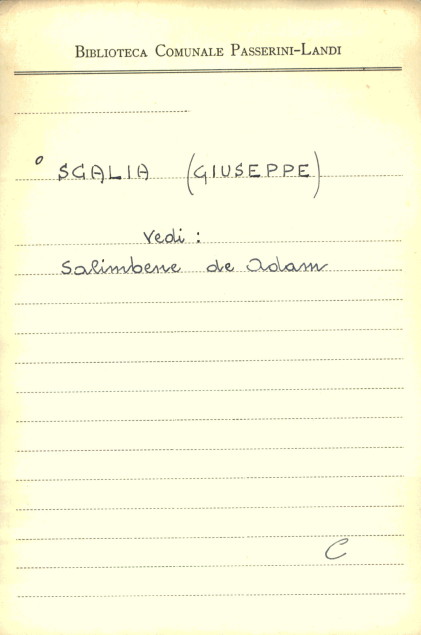 BIBLIOTECA COMUNALE PASSERINI-LANDI
° SGALIA (GIUSEPPE)
Vedi :
Salimbene de Adam
C